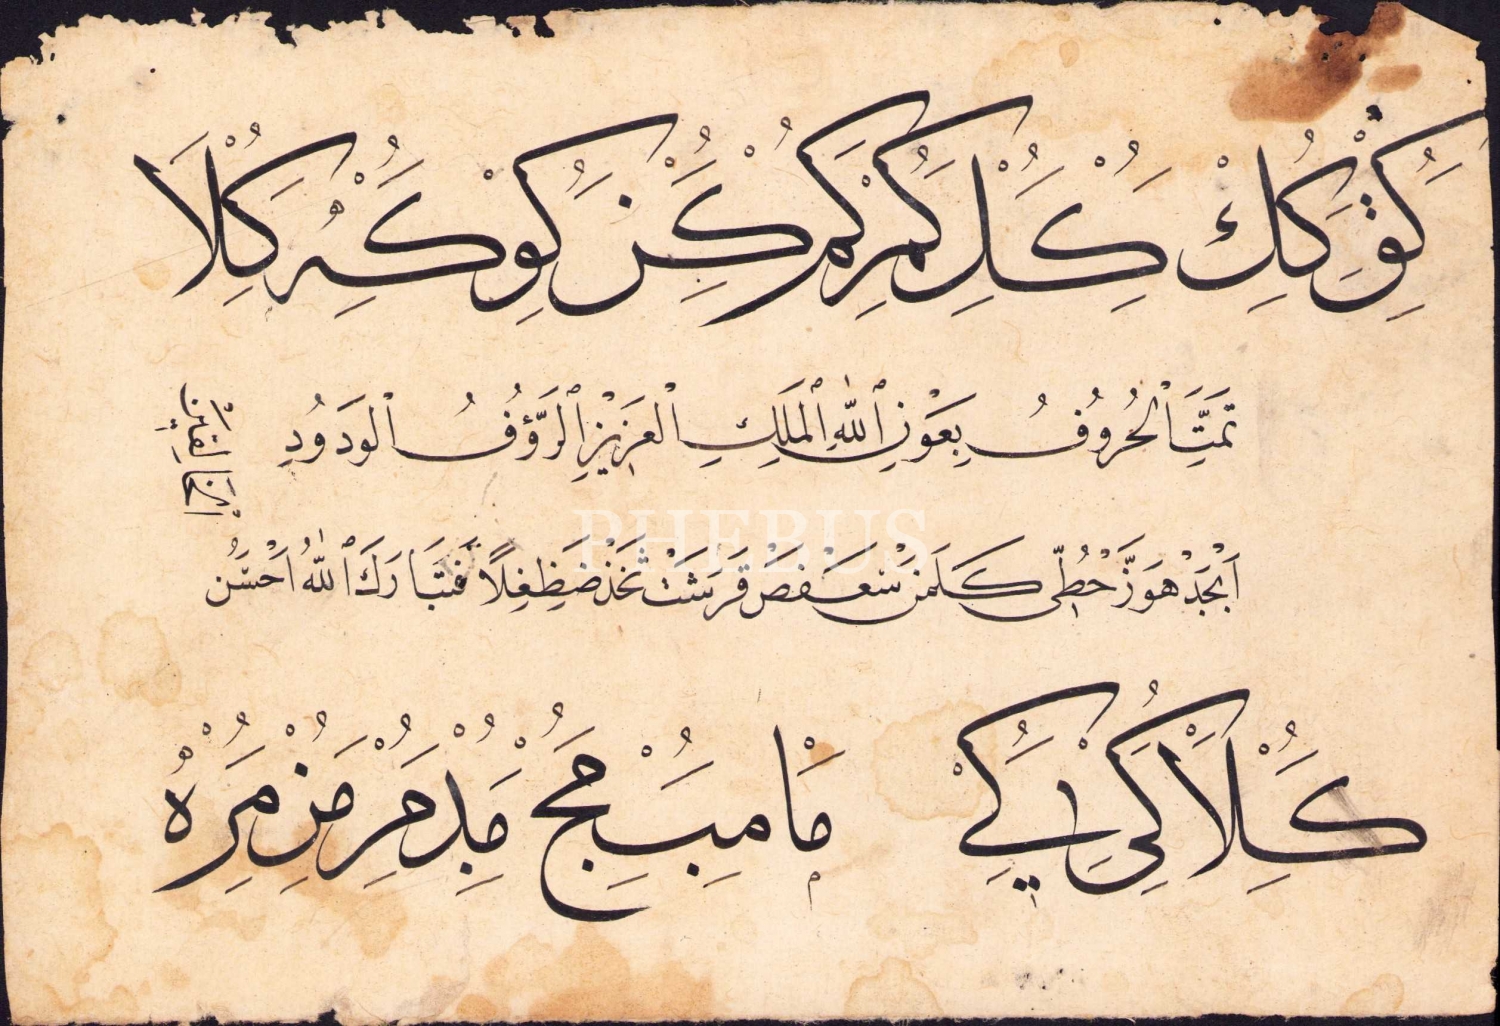 كق كك كل كم كم كن كو كه كلا
تمت الحروف بعون الله الملك العزيز الرؤف الودود
ابجد هوز حطي كلمن سعفص قرشت ثخذ ضظغلا فتبارك الله احسن
كلا كي كي ما مب مج مد مر من مره
PHEBUS